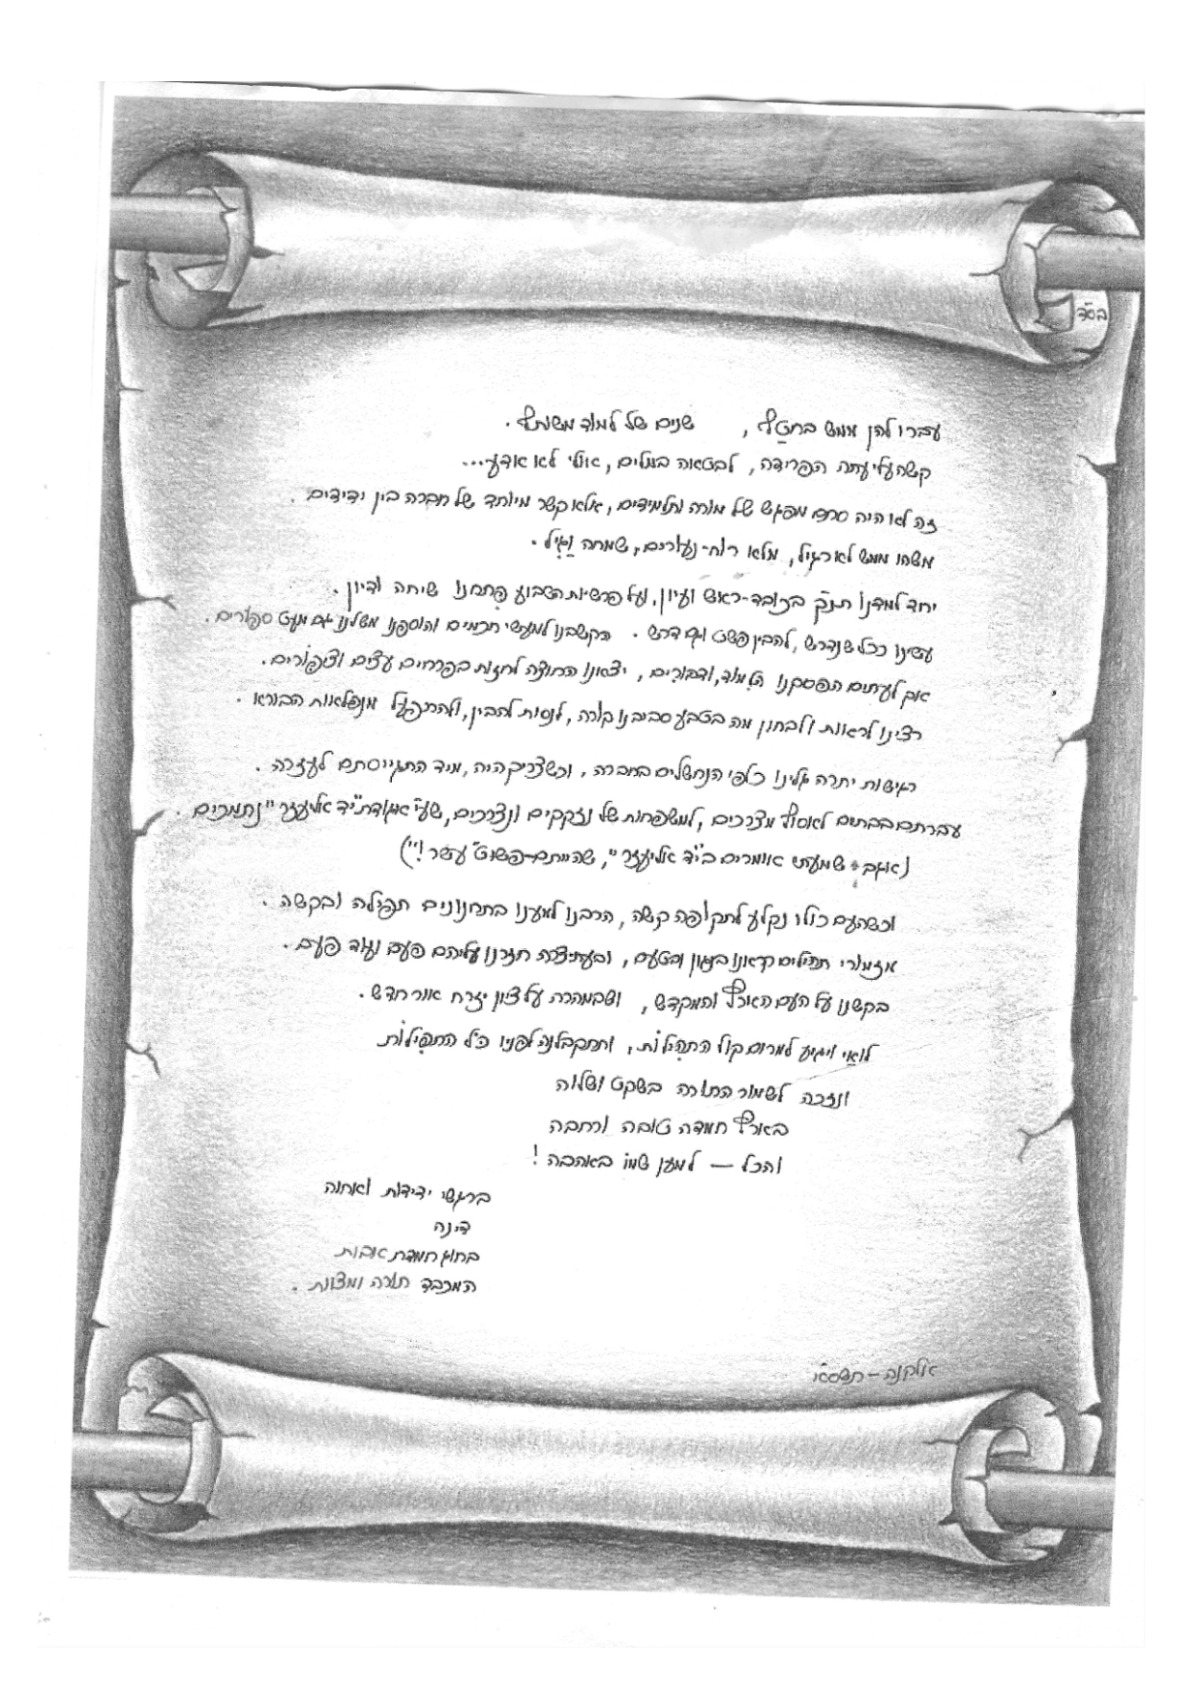 בס"ד
עברו להן ממש בחטף, שנים של למוד משותף.
קשה עלי עתה הפרידה, לבטאה במלים, אולי לא אדע...
זה לא היה סתם מפגש של מורה ותלמידים, אלא קשר מיוחד של חברה בין ידידים.
משהו ממש לא רגיל, מלא רוח-נעורים, שמחה וגיל.
יחד למדנו תנ"ך בכובד-ראש ועיון, ועל פרשיות השבוע פתחנו שיחה ודיון.
עשינו ככל שנדרש, להבין פשט וגם דרש. הקשבנו למעשי חכמים והוספנו משלנו גם מעט ספורים.
אם לעתים הפסקנו הלמוד, ודבורים, יצאנו החוצה לחזות בפרחים עצים וצפורים.
רצינו לראות ולבחון מה בטבע סביבנו קורה, לנסות להבין, ולהתפעל מנפלאות הבורא.
רגישות יתרה גלינו כלפי הנחשלים בחברה, וכשצריך היה, מיד התגייסתם לעזרה.
עברתם בבתים לאסוף מצרכים, למשפחות של נזקקים ונצרכים, שע"י אגודת "יד אליעזר" נתמכים.
(אגב שמעתי אומרים ב"יד אליעזר", שהייתם-פשוט "עשר"!)
וכשהעם כולו נקלע לתקופה קשה, הרבנו למענו בתחנונים תפילה ובקשה.
מזמורי תהילים קראנו בנגון ובטעם, ובעת צרה חזרנו עליהם פעם ועוד פעם.
בקשנו על העם הארץ והמקדש, ושבמהרה על ציון יזרח אור חדש.
לואי ויגיע למרום קול התהילות, ותתקבלנה לפניו כל התפילות
ונזכה לשמור התורה בשקט ושלוה
בארץ חמדה טובה ורחבה
והכל — למען שמו באהבה!
ברגשי ידידות ואחוה
דינה
בחוג חמדת אבות
המכבד תורה ומצוות.
אלקנה - תשס"א